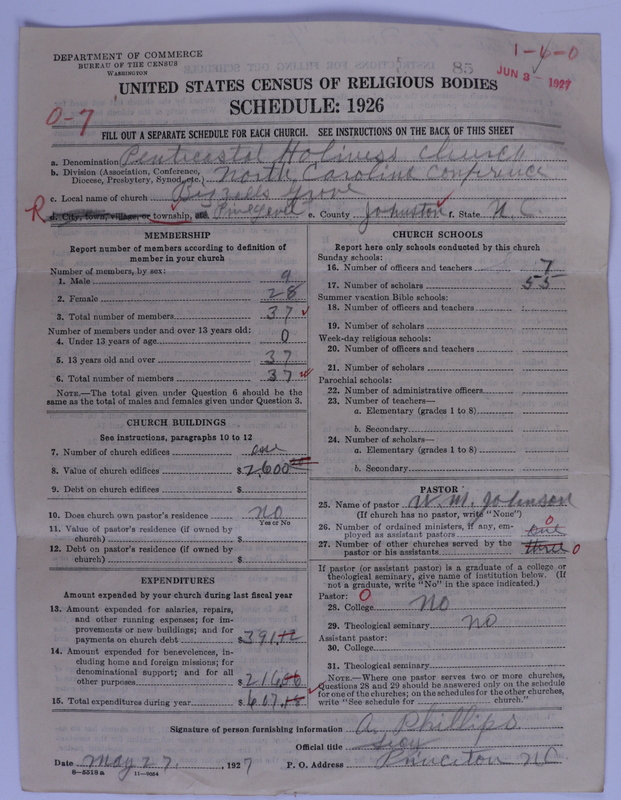 1-4-0
85
JUN 3 - 1927
DEPARTMENT OF COMMERCE
BUREAU OF THE CENSUS
WASHINGTON
UNITED STATES CENSUS OF RELIGIOUS BODIES
SCHEDULE: 1926
0-7
FILL OUT A SEPARATE SCHEDULE FOR EACH CHURCH. SEE INSTRUCTIONS ON THE BACK OF THIS SHEET
a. Denomination Pentecostal Holiness Church
b. Division (Association, Conference, Diocese, Presbytery, Synod, etc.) North Carolina Conference
c. Local name of church Grove
R d. City, town, village, or township, etc. e. County Johnston f. State N. C.
MEMBERSHIP
Report number of members according to definition of
member in your church
Number of members, by sex:
1. Male 9
2. Female 28
3. Total number of members 37
Number of members under and over 13 years old:
4. Under 13 years of age 0
5. 13 years old and over 37
6. Total number of members 37
NOTE.—The total given under Question 6 should be
same as the total of males and females given under Question 3.
CHURCH BUILDINGS
See instructions, paragraphs 10 to 12
7. Number of church edifices one
8. Value of church edifices $2,600
9. Debt on church edifices $
10. Does church own pastor's residence no
Yes or No
11. Value of pastor's residence (if owned by
church) $
12. Debt on pastor's residence (if owned by
church) $
EXPENDITURES
Amount expended by your church during last fiscal year
13. Amount expended for salaries, repairs,
and other running expenses; for im-
provements or new buildings; and for
payments on church debt $391.
14. Amount expended for benevolences, in-
cluding home and foreign missions; for
denominational support; and for all
other purposes $216
15. Total expenditures during year $607.
CHURCH SCHOOLS
Report here only schools conducted by this church
Sunday schools:
16. Number of officers and teachers 7
17. Number of scholars 55
Summer vacation Bible schools:
18. Number of officers and teachers
19. Number of scholars
Week-day religious schools:
20. Number of officers and teachers
21. Number of scholars
Parochial schools:
22. Number of administrative officers
23. Number of teachers—
a. Elementary (grades 1 to 8)
b. Secondary
24. Number of scholars—
a. Elementary (grades 1 to 8)
b. Secondary
PASTOR
25. Name of pastor W. M. Johnson
(If church has no pastor, write "None")
26. Number of ordained ministers, if any, em-
ployed as assistant pastors one 0
27. Number of other churches served by the
pastor or his assistants three 0
If pastor (or assistant pastor) is a graduate of a college or
theological seminary, give name of institution below. (If
not a graduate, write "No" in the space indicated.)
Pastor: 0
28. College No
29. Theological seminary no
Assistant pastor:
30. College
31. Theological seminary
NOTE.—Where one pastor serves two or more churches,
Questions 28 and 29 should be answered only on the schedule
for one of the churches; on the schedules for the other churches,
write "See schedule for church."
Signature of person furnishing information A. Phillips
Official title Secy
Date May 27, 1927 P. O. Address Princeton NC
8-5518 a 11-9054